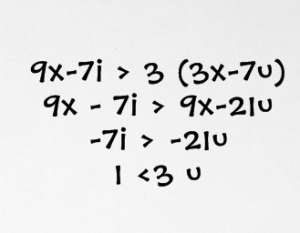 9x-7i > 3 (3x-7u)
9x - 7i > 9x-21u
-7i > -21u
I <3 u